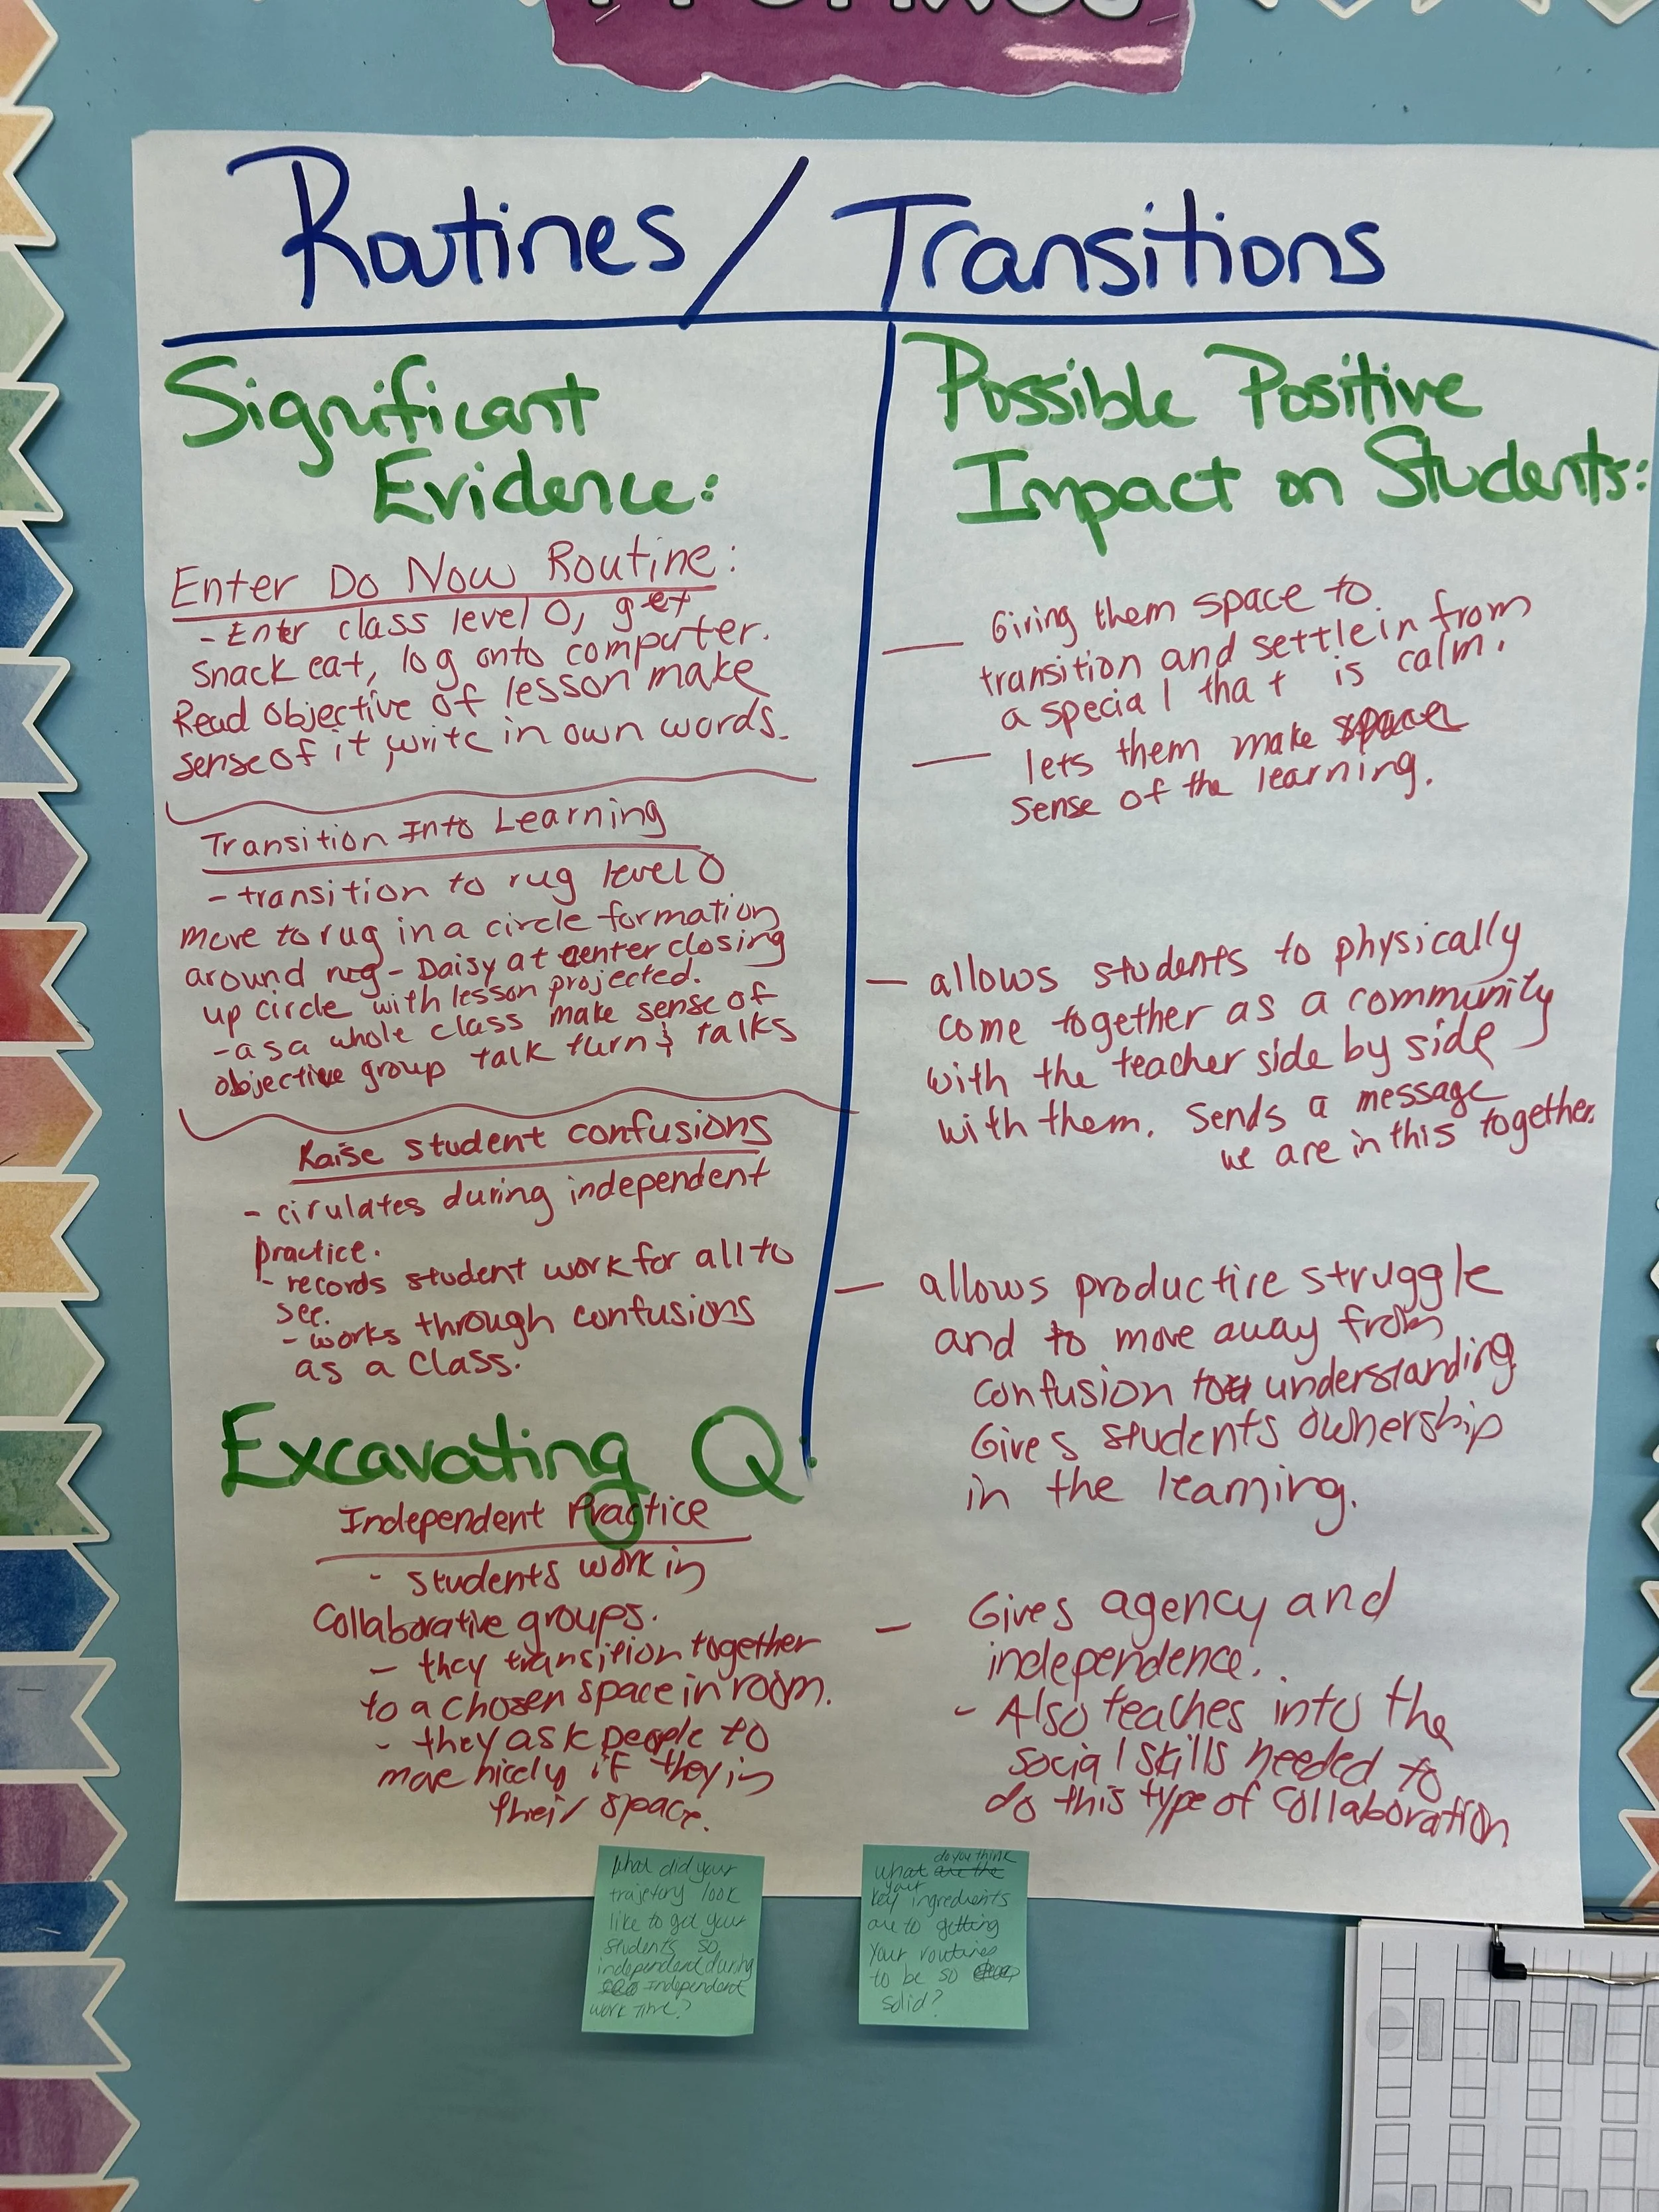 Routines / Transitions
Significant
Evidence:
Enter Do Now Routine:
- Enter class level 0, get
snack eat, log onto computer.
Read objective of lesson make
sense of it, write in own words.
Transition Into Learning
- transition to rug level 0
move to rug in a circle formation
around rug - Daisy at center closing
up circle with lesson projected.
- as a whole class make sense of
objective group talk turn & talks
Raise student confusions
- cirulates during independent
practice.
- records student work for all to
see.
- works through confusions
as a class.
Excavating Q:
Independent Practice
- students work in
Collaborative groups.
- they transition together
to a chosen space in room.
- they ask people to
move nicely if they in
their space.
Possible Positive
Impact on Students:
— Giving them space to
transition and settle in from
a special that is calm.
— lets them make
sense of the learning.
— allows students to physically
come together as a community
with the teacher side by side
with them. Sends a message
we are in this together.
— allows productive struggle
and to move away from
confusion to understanding
Gives students ownership
in the learning.
— Gives agency and
independence.
- Also teaches into the
social skills needed to
do this type of collaboration
What did your
trajetory look
like to get your
students so
independent during
Independent
work time?
do you think
what are the
your
key ingredients
are to getting
your routines
to be so
solid?